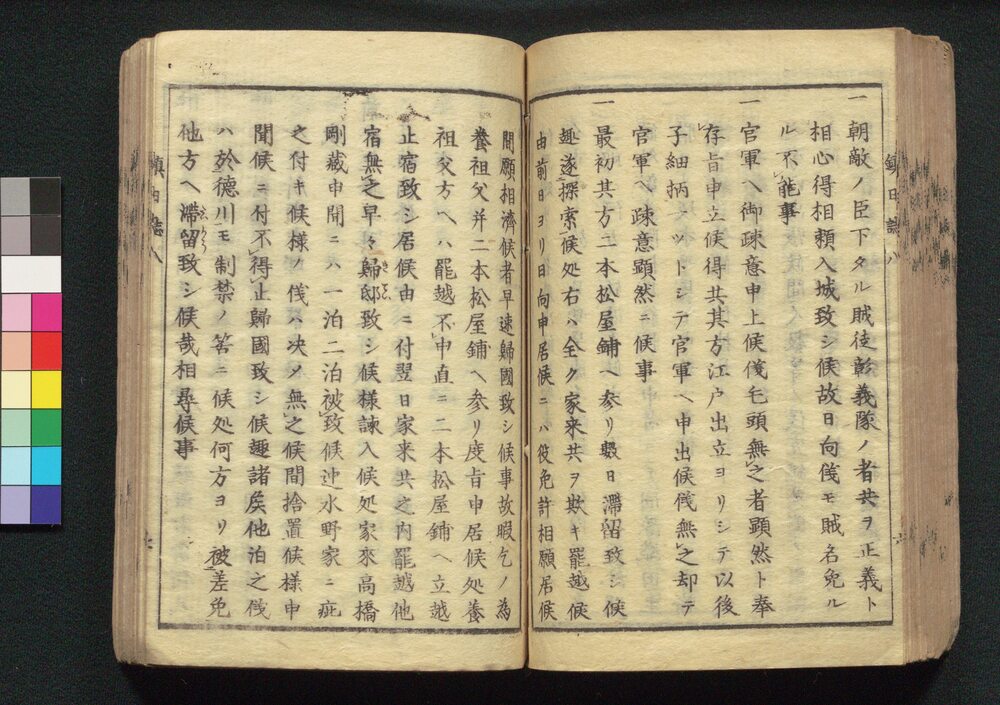 一朝敵ノ臣下タル賊徒彰義隊ノ者共ヲ正義ト
相心得相頼入城致シ候故日向儀モ賊名免ル
ル不能事
一官軍ヘ御疎意申上候儀毛頭無之者顕然ト奉
存旨申立候得共其方江戸出立ヨリシテ以後
子細柄ノツトシテ官軍ヘ申出候儀無之却テ
官軍ヘ疎意顕然ニ候事
一最初其方二本松屋鋪ヘ参リ数日滞留致シ候
趣遂探索候処右ハ全ク家来共ヲ欺キ罷越候
由前日ヨリ日向申居候ニハ役免許相願居候
間願相濟候者早速歸國致シ候事故暇乞ノ為
養祖父并二本松屋鋪ヘ参リ度旨申居候処養
祖父方ヘハ罷越不申直ニ二本松屋鋪ヘ立越
止宿致シ居候由ニ付翌日家来共之内罷越他
宿無之早々歸邸致シ候様諫入候処家來高橋
剛蔵申聞ニハ一泊二泊被致候迚水野家ニ疵
之付キ候様ノ儀ハ决〆無之候間捨置候様申
聞候ニ付不得止歸國致シ候趣諸矦他泊之儀
ハ於德川モ制禁ノ筈ニ候処何方ヨリ被差免
他方ヘ滞留致シ候哉相尋候事
鎮日誌八
鎮日誌八